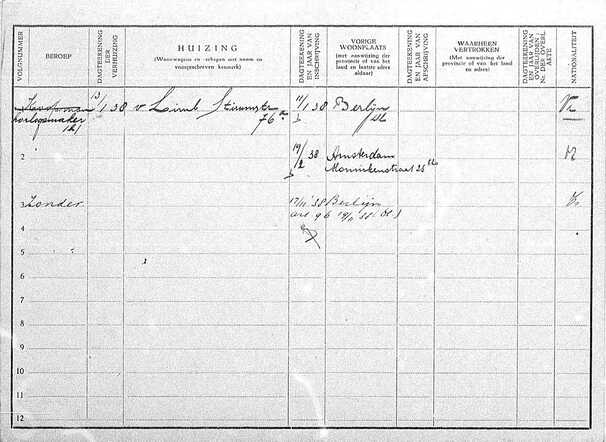 VOLGNUMMER
BEROEP
DAGTEEKENING DER VERHUIZING
HUIZING
(Woonwagen en -schepen met naam en voorgeschreven kenmerk)
DAGTEEKENING EN JAAR VAN INSCHRIJVING
VORIGE WOONPLAATS
(met aanwijzing der provincie of van het land en laatste adres aldaar)
DAGTEEKENING EN JAAR VAN AFSCHRIJVING
WAARHEEN VERTROKKEN
(Met aanwijzing der provincie of van het land en adres)
DAGTEEKENING EN JAAR VAN OVERLIJDEN Nr. DER OVERL. AKTE
NATIONALITEIT
Koopman 13/1 38 v. Limb Stirumstr 11/1 38 Berlijn
horlogemaker 76
2 19/2 38 Amsterdam
Monnikenstraat 25
3 Zonder 17/11 '38 Berlijn
art 9 b
4
5
6
7
8
9
10
11
12